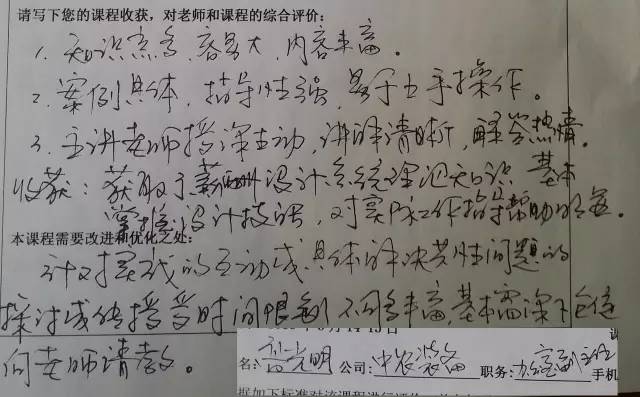 请写下您的课程收获，对老师和课程的综合评价：
1、知识点多，容量大，内容丰富。
2、案例具体，指导性强，易于上手操作。
3、主讲老师授课生动，讲解清晰，解答热情。
收获：获取了薪酬设计系统理论知识 基本
掌握设计技术，对实际工作指导帮助
本课程需要改进和优化之处：
针对提成的互动或具体解决共性问题的
探讨或传授受时间限制 不可多丰富，基本需课下
向老师请教。
名： 光明 公司：中农装备 职务：办公室副主任 手机
据如下标准对该课程进行评价